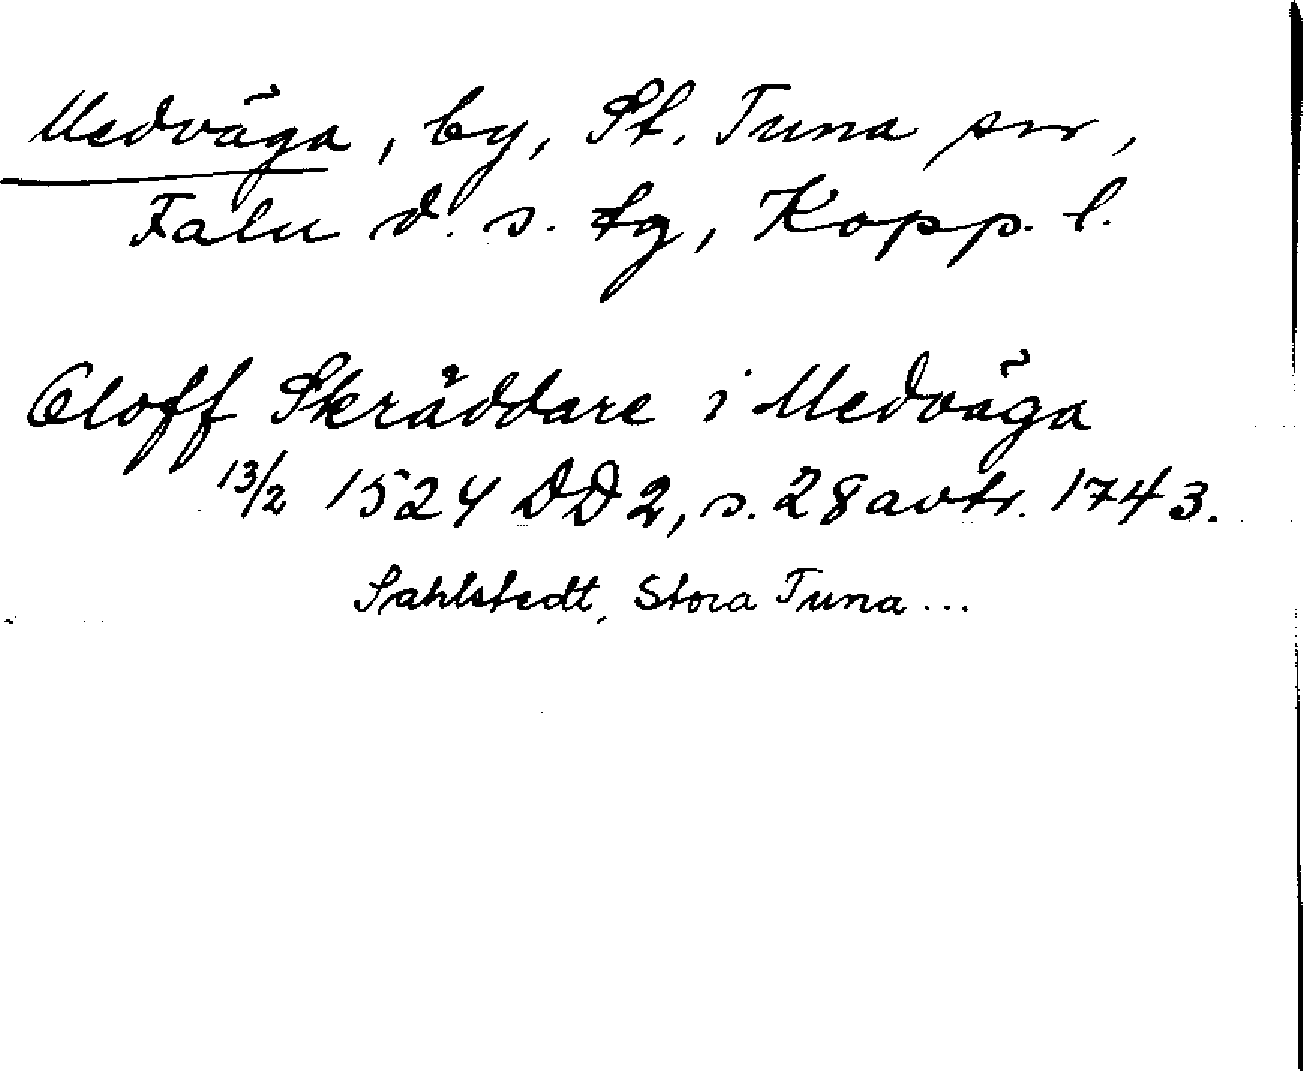 Medväga, by, St. Tuna sn,
Falu d. s. tg, Kopp. l.
Oloff Skräddare i Medväga
13/2 1524 DD2, s. 28 avtr. 1743.
Sahlstedt, Stora Tuna ...